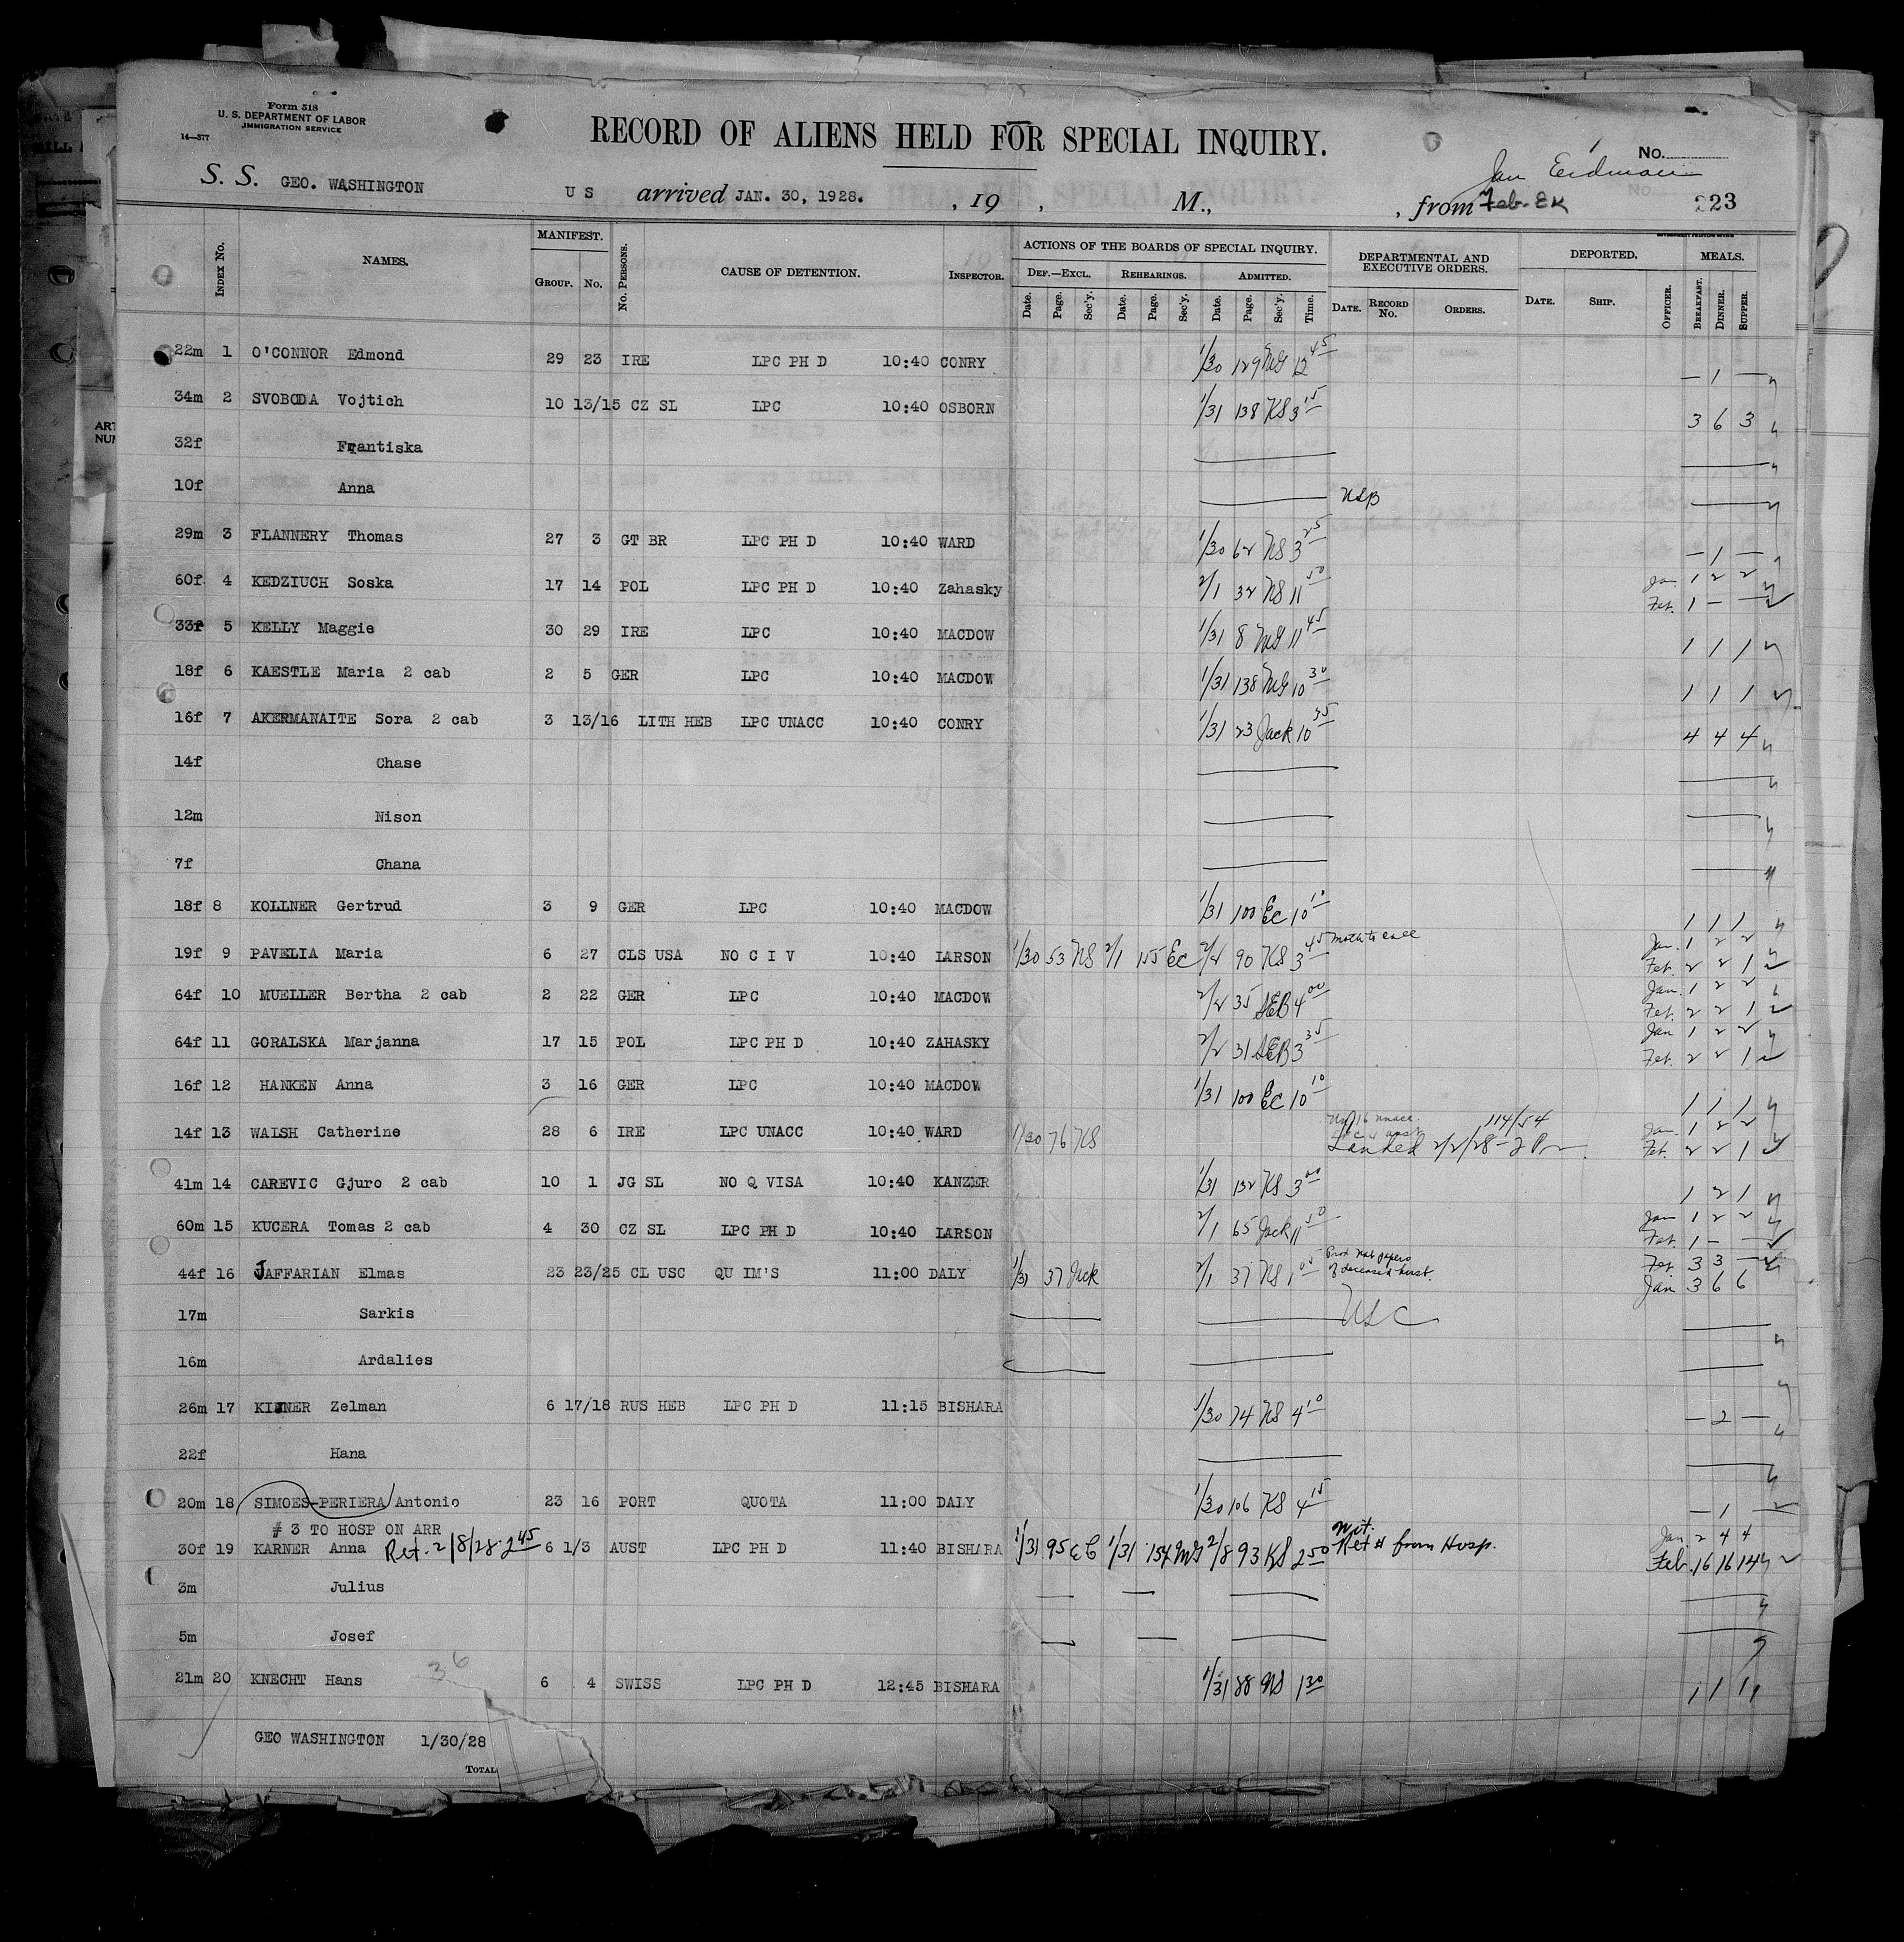 Form 518
U. S. DEPARTMENT OF LABOR
IMMIGRATION SERVICE
14—377
RECORD OF ALIENS HELD FOR SPECIAL INQUIRY.
No.
S. S. GEO. WASHINGTON U S arrived JAN. 30, 1928. , 19 , M., , from Feb. EK 223
Index No. NAMES. MANIFEST. Group. No. No. Persons. CAUSE OF DETENTION. Inspector. ACTIONS OF THE BOARDS OF SPECIAL INQUIRY. DEPARTMENTAL AND EXECUTIVE ORDERS. DEPORTED. MEALS.
Def.—Excl. Rehearings. Admitted.
Date. Page. Sec'y. Date. Page. Sec'y. Date. Page. Sec'y. Time. Date. Record No. Orders. Date. Ship. Officer. Breakfast. Dinner. Supper.
22m 1 O'CONNOR Edmond 29 23 IRE LPC PH D 10:40 CONRY 1/30 129 MG 12 45 — 1 —
34m 2 SVOBODA Vojtich 10 13/15 CZ SL LPC 10:40 OSBORN 1/31 138 KS 3 15 3 6 3
32f Frantiska
10f Anna
29m 3 FLANNERY Thomas 27 3 GT BR LPC PH D 10:40 WARD 1/30 62 NS 3 25 — 1 —
60f 4 KEDZIUCH Soska 17 14 POL LPC PH D 10:40 Zahasky 2/1 32 NS 11 50 Jan. 1 2 2
Feb. 1 — —
33f 5 KELLY Maggie 30 29 IRE LPC 10:40 MACDOW 1/31 8 MG 11 45 1 1 1
18f 6 KAESTLE Maria 2 cab 2 5 GER LPC 10:40 MACDOW 1/31 138 MG 10 30 1 1 1
16f 7 AKERMANAITE Sora 2 cab 3 13/16 LITH HEB LPC UNACC 10:40 CONRY 1/31 23 Jack 10 35 4 4 4
14f Chase
12m Nison
7f Chana
18f 8 KOLLNER Gertrud 3 9 GER LPC 10:40 MACDOW 1/31 100 EC 10 10 1 1 1
19f 9 PAVELIA Maria 6 27 CLS USA NO C I V 10:40 LARSON 1/30 53 NS 2/1 155 EC 2/4 90 KS 3 45 Jan. 1 2 2
Feb. 2 2 1
64f 10 MUELLER Bertha 2 cab 2 22 GER LPC 10:40 MACDOW 2/2 35 SEB 4 00 Jan. 1 2 2
Feb. 2 2 1
64f 11 GORALSKA Marjanna 17 15 POL LPC PH D 10:40 ZAHASKY 2/2 31 SEB 3 35 Jan 1 2 2
Feb. 2 2 1
16f 12 HANKEN Anna 3 16 GER LPC 10:40 MACDOW 1/31 100 EC 10 10 1 1 1
14f 13 WALSH Catherine 28 6 IRE LPC UNACC 10:40 WARD 1/30 76 KS 114/54 Jan. 1 2 2
Landed 2/2/28 - 2 Pm Feb. 2 2 1
41m 14 CAREVIC Gjuro 2 cab 10 1 JG SL NO Q VISA 10:40 KANZER 1/31 132 KS 3 00 1 2 1
60m 15 KUCERA Tomas 2 cab 4 30 CZ SL LPC PH D 10:40 LARSON 2/1 65 Jack 11 50 Jan 1 2 2
Feb. 1 — —
44f 16 JAFFARIAN Elmas 23 23/25 CL USC QU IM'S 11:00 DALY 1/31 37 Jack 2/1 37 NS 1 05 Feb 3 3 —
of deceased husb. Jan 3 6 6
17m Sarkis USC
16m Ardalies
26m 17 KIJNER Zelman 6 17/18 RUS HEB LPC PH D 11:15 BISHARA 1/30 74 NS 4 10 — 2 —
22f Hana
20m 18 SIMOES-PERIERA Antonio 23 16 PORT QUOTA 11:00 DALY 1/30 106 KS 4 15 — 1 —
# 3 TO HOSP ON ARR
30f 19 KARNER Anna Ret. 2/8/28 - 2 45 6 1/3 AUST LPC PH D 11:40 BISHARA 1/31 95 EC 1/31 154 MG 2/8 93 KS 2 50 Ret'd from Hosp. Jan. 2 4 4
Feb. 16 16 14
3m Julius
5m Josef
21m 20 KNECHT Hans 36 6 4 SWISS LPC PH D 12:45 BISHARA 1/31 88 NS 1 30 1 1 1
GEO WASHINGTON 1/30/28
Total